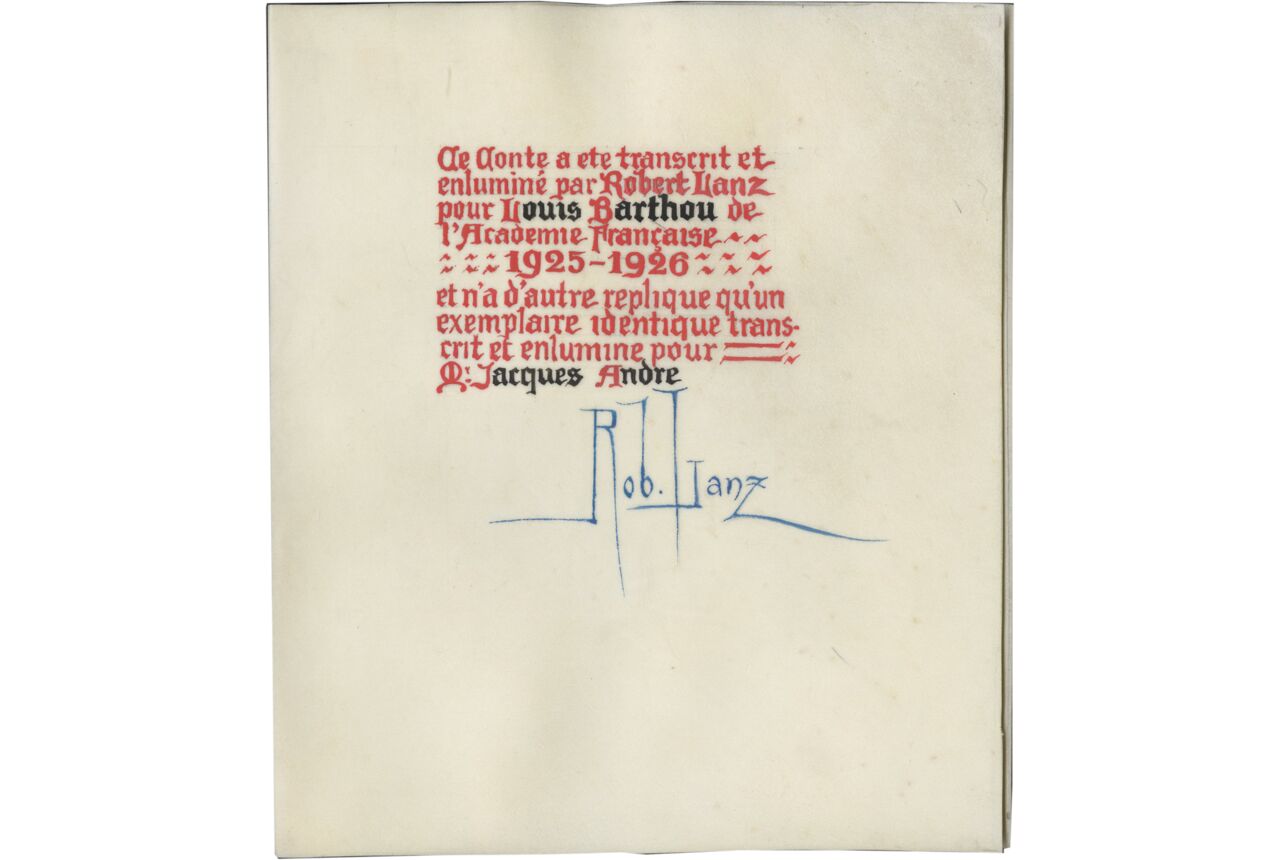 Ce Conte a ete transcrit et
enluminé par Robert Lanz
pour Louis Barthou de
l'Academie Française
1925-1926
et n'a d'autre replique qu'un
exemplaire identique trans-
crit et enlumine pour
Mr. Jacques Andre
Rob. Lanz